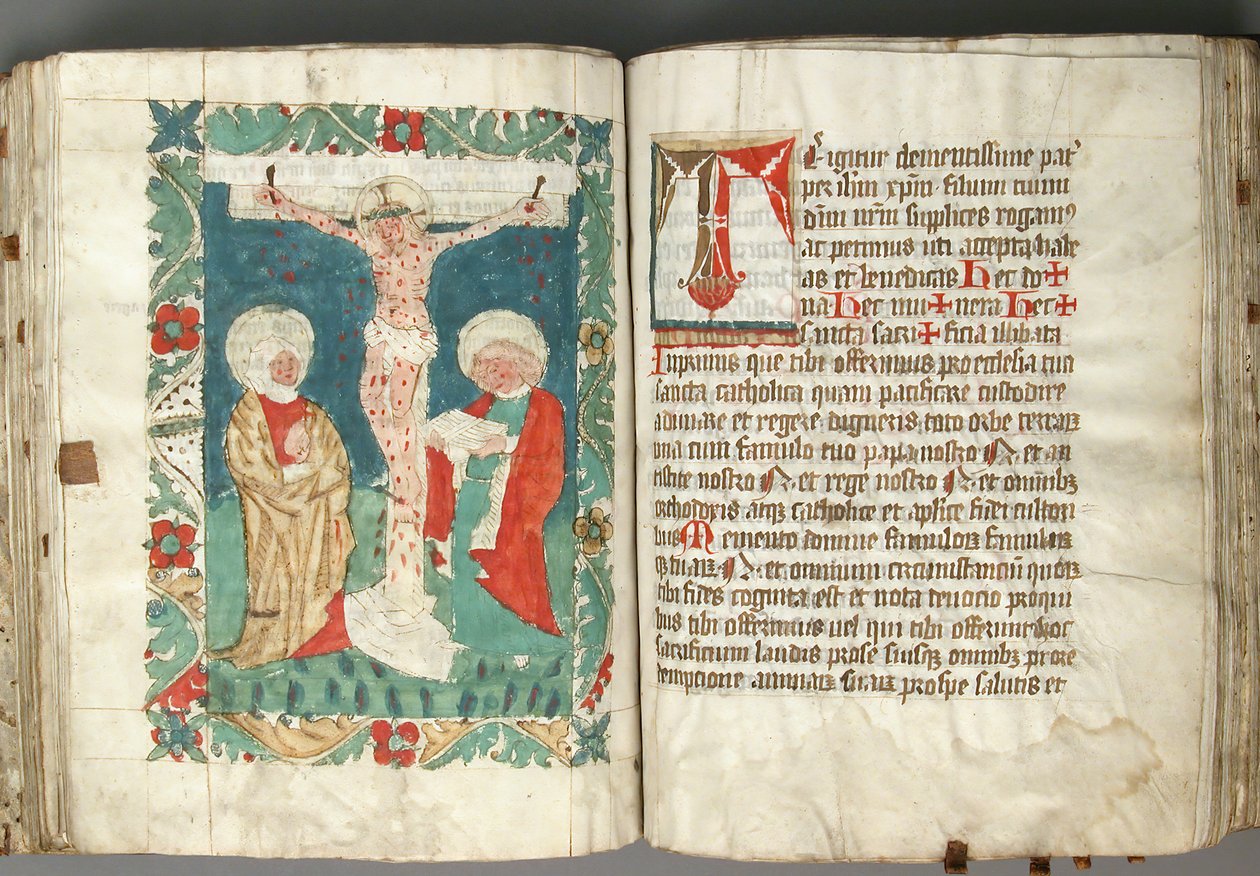 T
E igitur clementissime pat᷒
per ih̄m xp̄m filium tuum
dn̄m nr̄m supplices rogam᷒
ac petimus uti accepta habe
as et benedicas Hec do✠
na Hec mu✠nera Hec✠
sancta sacri✠ficia illibata
Inprimis que tibi offerimus pro ecclesia tua
sancta catholica quam pacificare custodire
adunare et regere digneris toto orbe terraꝝ
una cum famulo tuo papa nostro N. et an
tistite nostro N. et rege nostro N. et omnibꝫ
orthodoxis atqꝫ catholice et aplice fidei cultori
bus Memento domine famuloꝝ famulaꝝ
qꝫ tuaꝝ N. et omnium circumstanciū quoꝝ
tibi fides cognita est et nota deuocio pro qui
bus tibi offerimus uel qui tibi offerunt hoc
sacrificium laudis pro se suisqꝫ omnibꝫ pro re
demptione animaꝝ suaꝝ pro spe salutis et